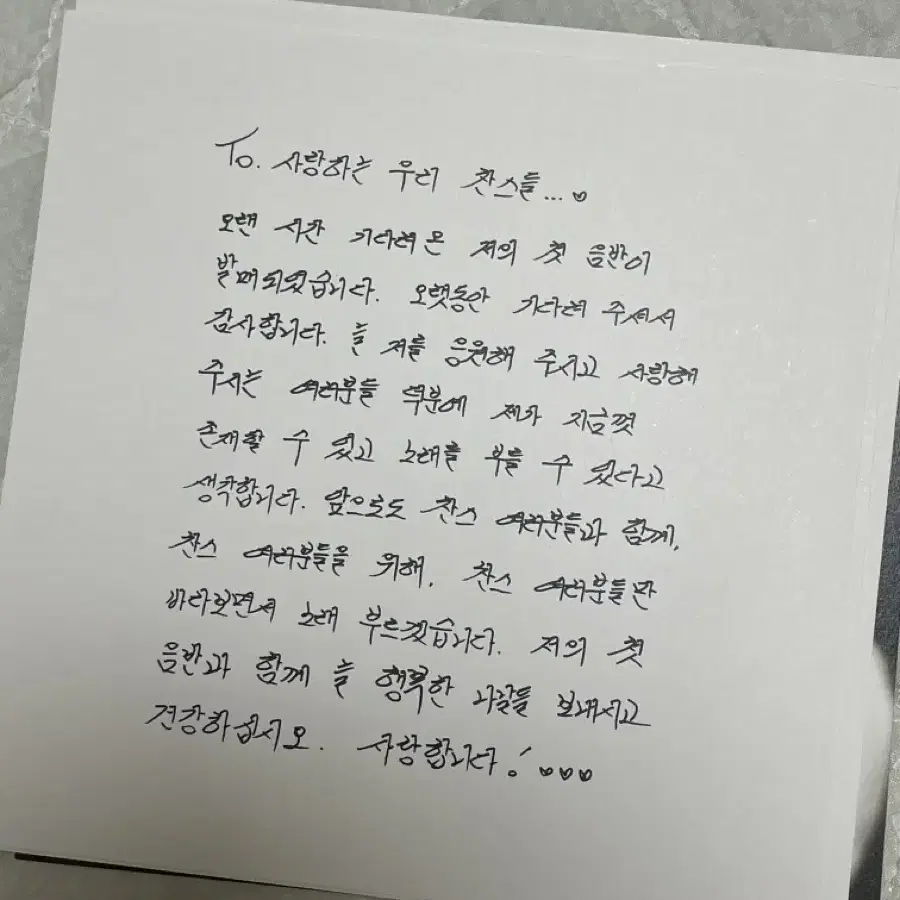 To. 사랑하는 우리 찬스들...♡
오랜 시간 기다려온 저의 첫 음반이
발매되었습니다. 오랫동안 기다려 주셔서
감사합니다. 늘 저를 응원해 주시고 사랑해
주시는 여러분들 덕분에 제가 지금껏
존재할 수 있었고 노래를 부를 수 있었다고
생각합니다. 앞으로도 찬스 여러분들과 함께,
찬스 여러분들을 위해, 찬스 여러분들만
바라보면서 노래 부르겠습니다. 저의 첫
음반과 함께 늘 행복한 나날들 보내시고
건강하십시오. 사랑합니다! ♡♡♡